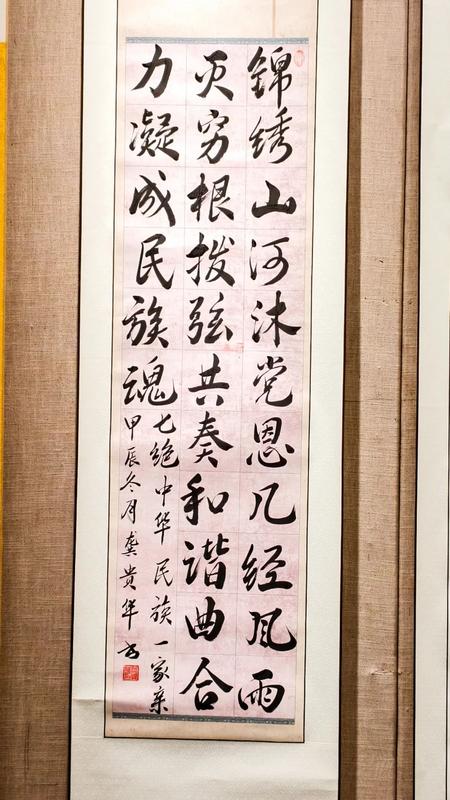 錦绣山河沐党恩几经风雨
灭穷根拨弦共奏和谐曲合
力凝成民族魂
七绝中华民族一家亲
甲辰冬月龚贵华书